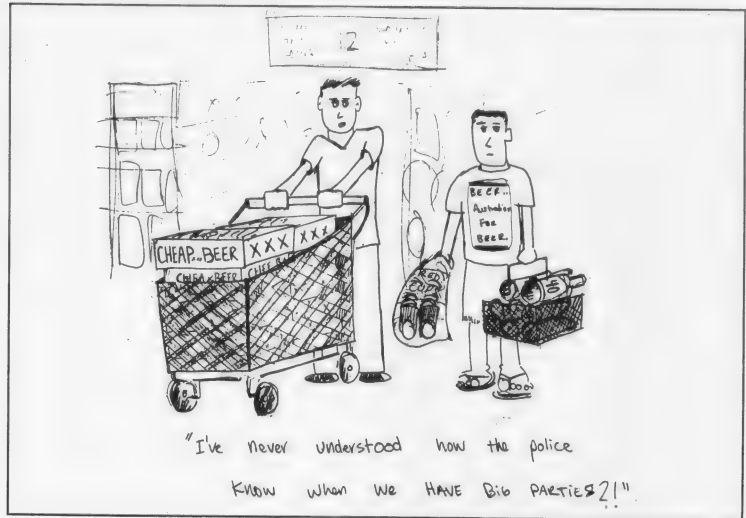 12
CHEAP BEER XXX XXX
CHEAP BEER
BEER...
Australian
For
BEER.
"I've never understood how the police
Know when we HAVE BIG PARTIES?!"